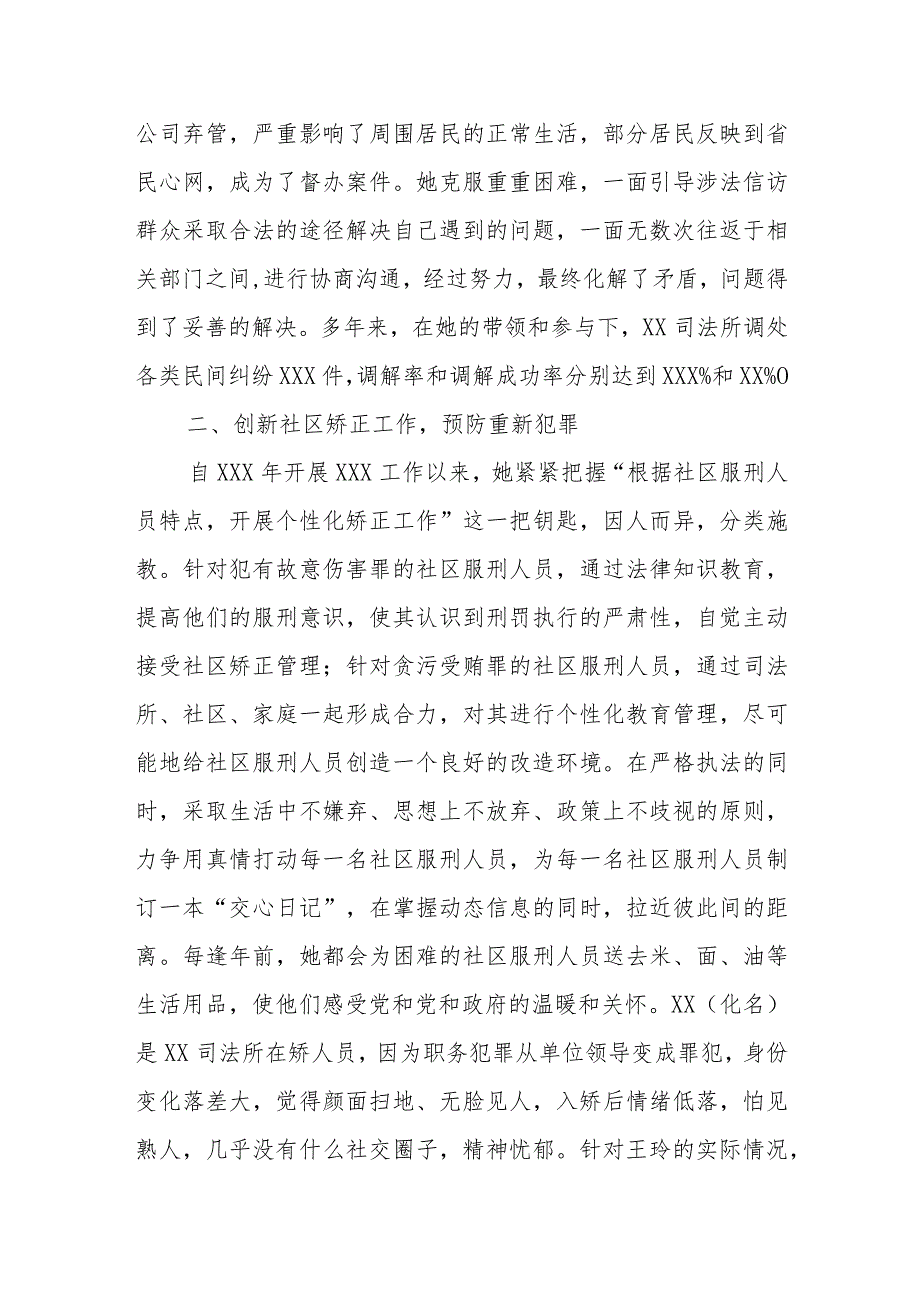 公司弃管，严重影响了周围居民的正常生活，部分居民反映到省
民心网，成为了督办案件。她克服重重困难，一面引导涉法信访
群众采取合法的途径解决自己遇到的问题，一面无数次往返于相
关部门之间,进行协商沟通，经过努力，最终化解了矛盾，问题得
到了妥善的解决。多年来，在她的带领和参与下，XX司法所调处
各类民间纠纷XXX件,调解率和调解成功率分别达到XXX%和XX%O
二、创新社区矫正工作，预防重新犯罪
自XXX年开展XXX工作以来，她紧紧把握“根据社区服刑人
员特点，开展个性化矫正工作”这一把钥匙，因人而异，分类施
教。针对犯有故意伤害罪的社区服刑人员，通过法律知识教育，
提高他们的服刑意识，使其认识到刑罚执行的严肃性，自觉主动
接受社区矫正管理；针对贪污受贿罪的社区服刑人员，通过司法
所、社区、家庭一起形成合力，对其进行个性化教育管理，尽可
能地给社区服刑人员创造一个良好的改造环境。在严格执法的同
时，采取生活中不嫌弃、思想上不放弃、政策上不歧视的原则，
力争用真情打动每一名社区服刑人员，为每一名社区服刑人员制
订一本“交心日记”，在掌握动态信息的同时，拉近彼此间的距
离。每逢年前，她都会为困难的社区服刑人员送去米、面、油等
生活用品，使他们感受党和党和政府的温暖和关怀。XX（化名）
是XX司法所在矫人员，因为职务犯罪从单位领导变成罪犯，身份
变化落差大，觉得颜面扫地、无脸见人，入矫后情绪低落，怕见
熟人，几乎没有什么社交圈子，精神忧郁。针对王玲的实际情况，